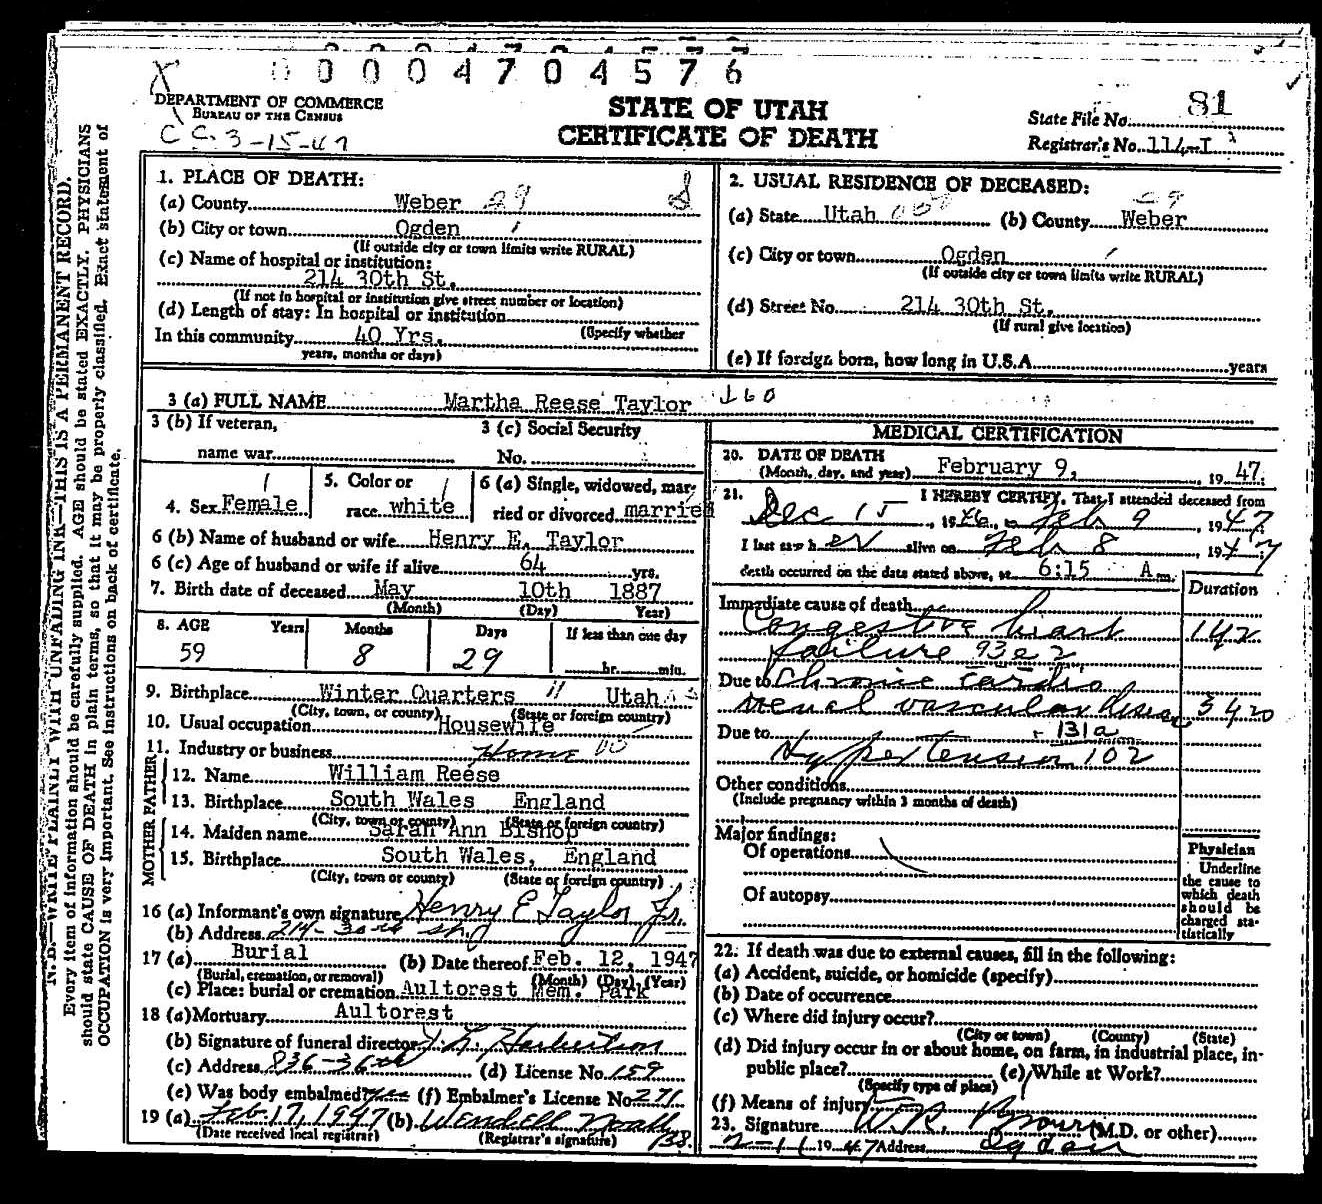 0 0 0 0 4 7 0 4 5 7 6
DEPARTMENT OF COMMERCE
BUREAU OF THE CENSUS
C C. 3-15-47
STATE OF UTAH
CERTIFICATE OF DEATH
81
State File No.
Registrar's No. 114-I
N. B.—WRITE PLAINLY WITH UNFADING INK—THIS IS A PERMANENT RECORD.
Every item of information should be carefully supplied. AGE should be stated EXACTLY. PHYSICIANS
should state CAUSE OF DEATH in plain terms, so that it may be properly classified. Exact statement of
OCCUPATION is very important. See instructions on back of certificate.
1. PLACE OF DEATH:
(a) County Weber 29
(b) City or town Ogden
(If outside city or town limits write RURAL)
(c) Name of hospital or institution:
214 30th St.
(If not in hospital or institution give street number or location)
(d) Length of stay: In hospital or institution
In this community 40 Yrs. (Specify whether
years, months or days)
2. USUAL RESIDENCE OF DECEASED:
(a) State Utah (b) County Weber
(c) City or town Ogden
(If outside city or town limits write RURAL)
(d) Street No. 214 30th St.
(If rural give location)
(e) If foreign born, how long in U.S.A. years
3 (a) FULL NAME Martha Reese Taylor
3 (b) If veteran,
name war
3 (c) Social Security
No.
4. Sex Female
5. Color or
race white
6 (a) Single, widowed, mar-
ried or divorced married
6 (b) Name of husband or wife Henry E. Taylor
6 (c) Age of husband or wife if alive 64 yrs.
7. Birth date of deceased May 10th 1887
(Month) (Day) Year)
8. AGE Years Months Days If less than one day
59 8 29 hr. min.
9. Birthplace Winter Quarters Utah
(City, town, or county) (State or foreign country)
10. Usual occupation Housewife
11. Industry or business Home
FATHER
12. Name William Reese
13. Birthplace South Wales England
(City, town or county) (State or foreign country)
MOTHER
14. Maiden name Sarah Ann Bishop
15. Birthplace South Wales, England
(City, town or county) (State or foreign country)
16 (a) Informant's own signature Henry E Taylor Jr.
(b) Address 214-30th St.
17 (a) Burial (b) Date thereof Feb. 12, 1947
(Burial, cremation, or removal) (Month) (Day) (Year)
(c) Place: burial or cremation Aultorest Mem. Park
18 (a) Mortuary Aultorest
(b) Signature of funeral director
(c) Address 836-36th (d) License No. 159
(e) Was body embalmed? yes (f) Embalmer's License No. 271
19 (a) Feb. 17, 1947 (b) Wendell
(Date received local registrar) (Registrar's signature)
MEDICAL CERTIFICATION
20. DATE OF DEATH
(Month, day, and year) February 9, 1947.
21. I HEREBY CERTIFY, That I attended deceased from
Dec 15, 1946, to Feb 9, 1947
I last saw her alive on Feb 8, 1947
death occurred on the date stated above, at 6:15 A m.
Duration
Immediate cause of death
Congestive heart
failure 93e2
Due to Chronic cardio
renal vascular disease
Due to 131a
Hypertension 102
Other conditions
(Include pregnancy within 3 months of death)
Major findings:
Of operations
Of autopsy
Physician
Underline
the cause to
which death
should be
charged sta-
tistically
22. If death was due to external causes, fill in the following:
(a) Accident, suicide, or homicide (specify)
(b) Date of occurrence
(c) Where did injury occur?
(City or town) (County) (State)
(d) Did injury occur in or about home, on farm, in industrial place, in-
public place? (e) While at Work?
(Specify type of place)
(f) Means of injury
23. Signature W.R. (M.D. or other)
2-11-1947 Address Ogden